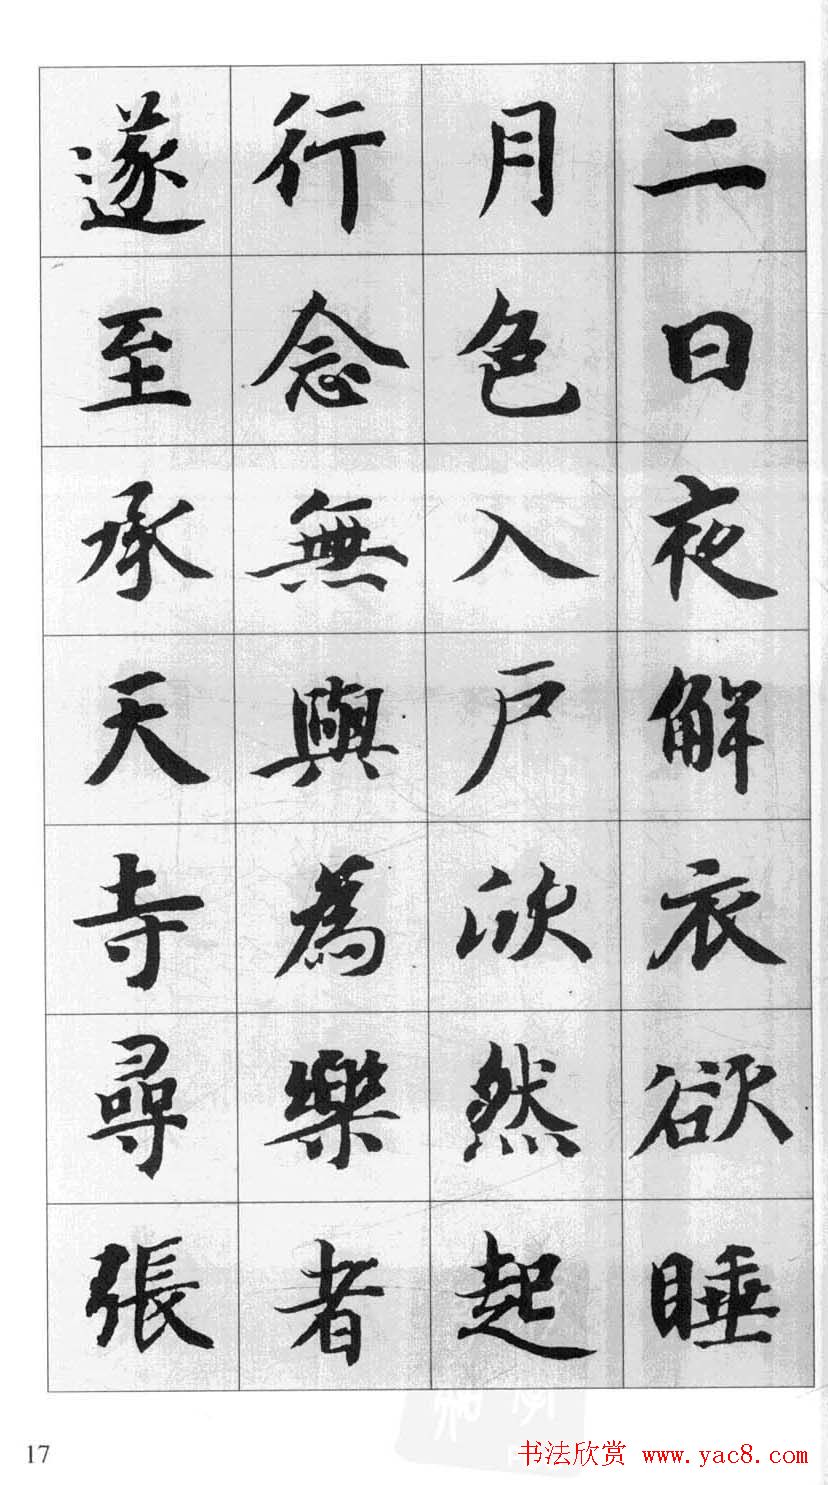 二日夜解衣欲睡
月色入戶欣然起
行念無與為樂者
遂至承天寺尋張
17
书法欣赏 www.yac8.com